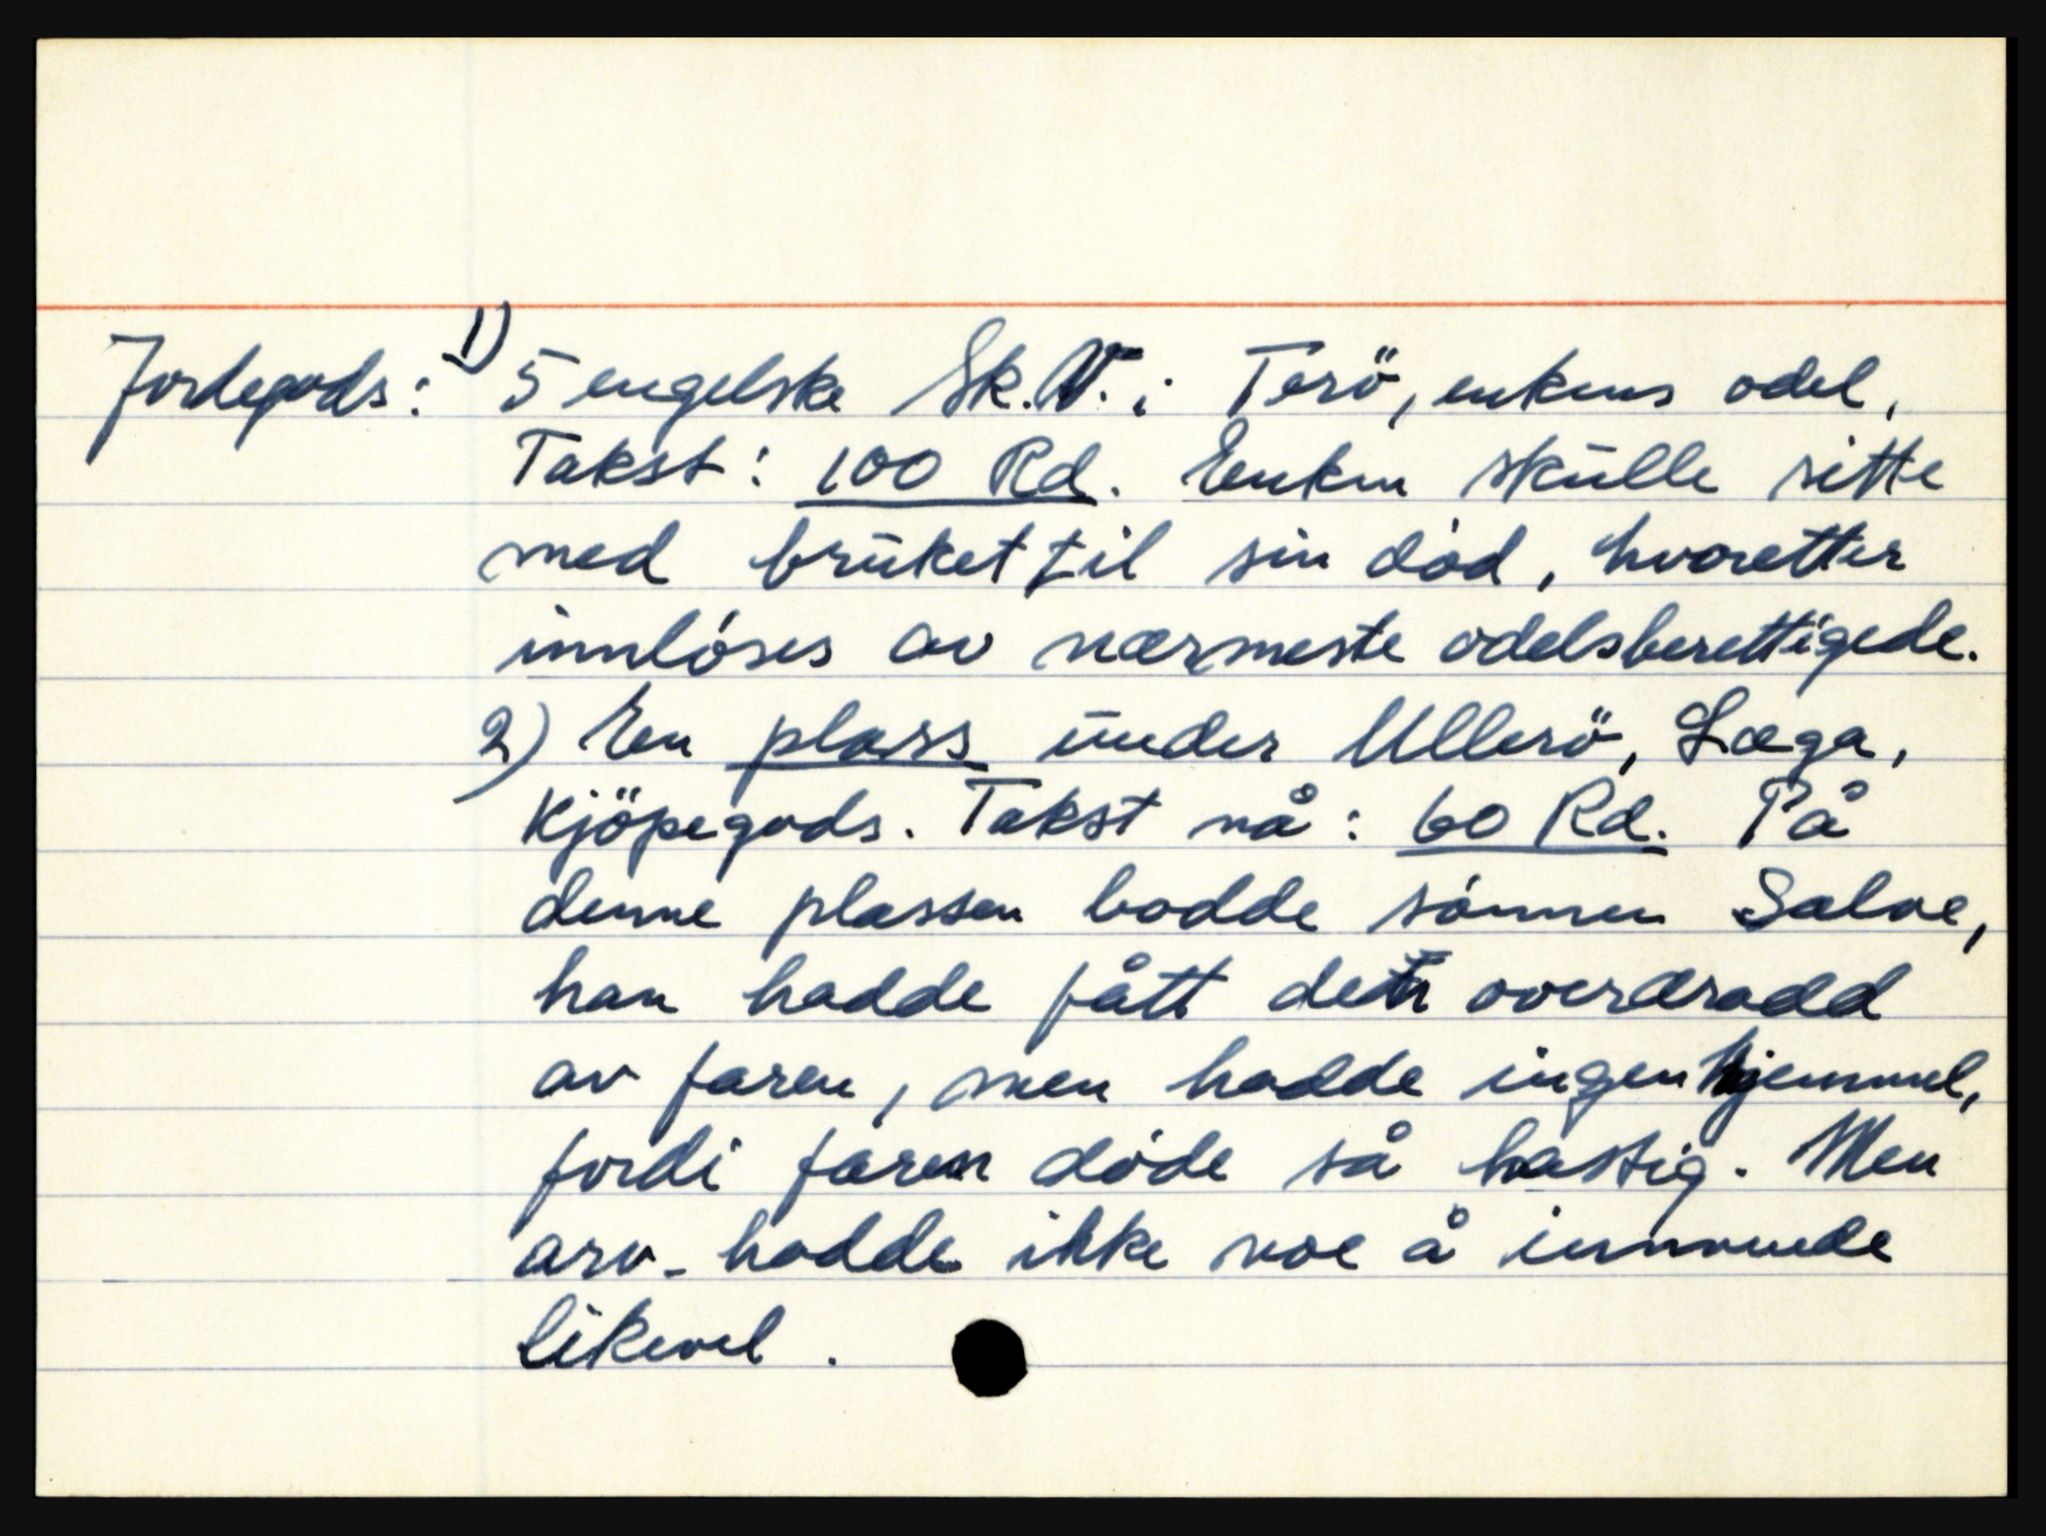 Jordegods: 1) 5 engelske Sk. V. i Terö, enkens odel,
Takst: 100 Rd. Enken skulle sitte
med bruket til sin död, hvoretter
innlöses av nærmeste odelsberettigede.
2) En plass under Ullerö, Læga,
Kjöpegods. Takst nå: 60 Rd. På
denne plassen bodde sönnen Salve,
han hadde fått den overdradd
av faren, men hadde ingen hjemmel,
fordi faren döde så hastig. Men
arv. hadde ikke noe å innvende
likevel.